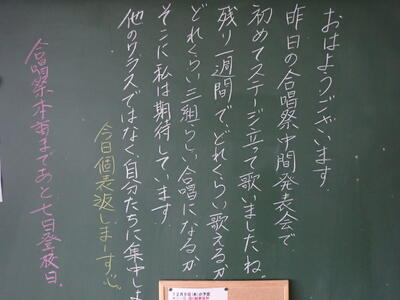 おはようございます。
昨日の合唱祭中間発表会で
初めてステージ立って歌いましたね。
残り一週間でどれくらい歌えるか
どれくらい三組らしい合唱になるか
そこに私は期待しています。
他のクラスではなく、自分たちに集中しま
今日個表返しまーす。
合唱祭本番まであと七日登校日。
12月9日(木)の予定